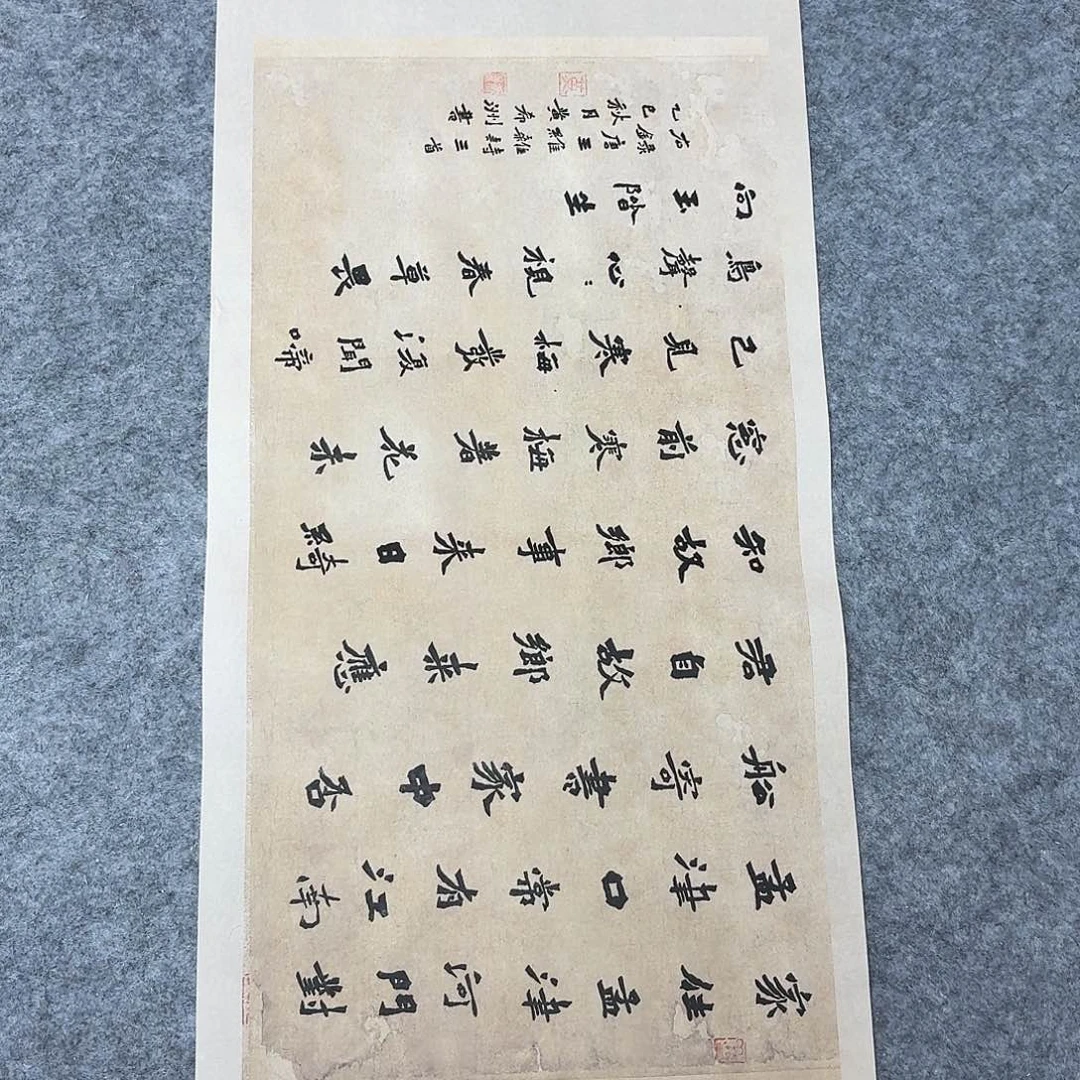 家住孟津河門對
孟津口常有江南
船寄書家中否
君自故鄉来應
知故鄉事来日綺
窓前寒梅著花未
已見寒梅發復聞啼
鳥聲心〻視春草畏
向玉階生
右錄唐王維雜詩三首
乙巳秋月黄希洲書